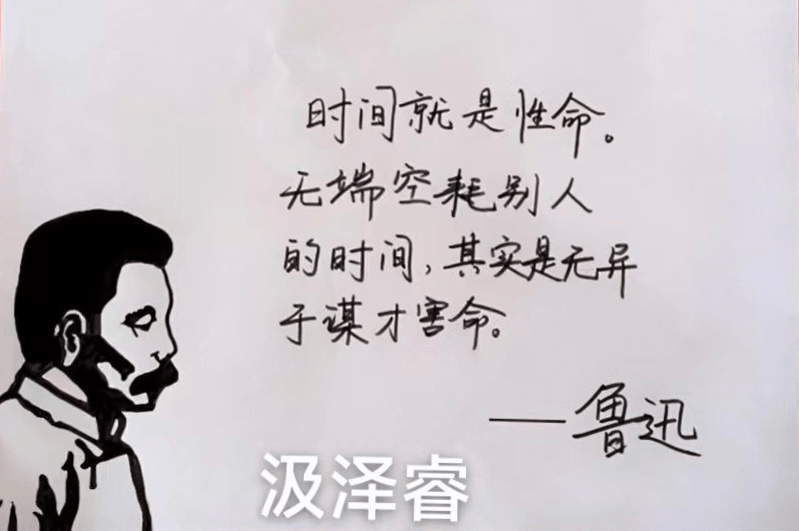 时间就是性命。
无端空耗别人
的时间,其实是无异
于谋才害命。
——鲁迅
汲泽睿